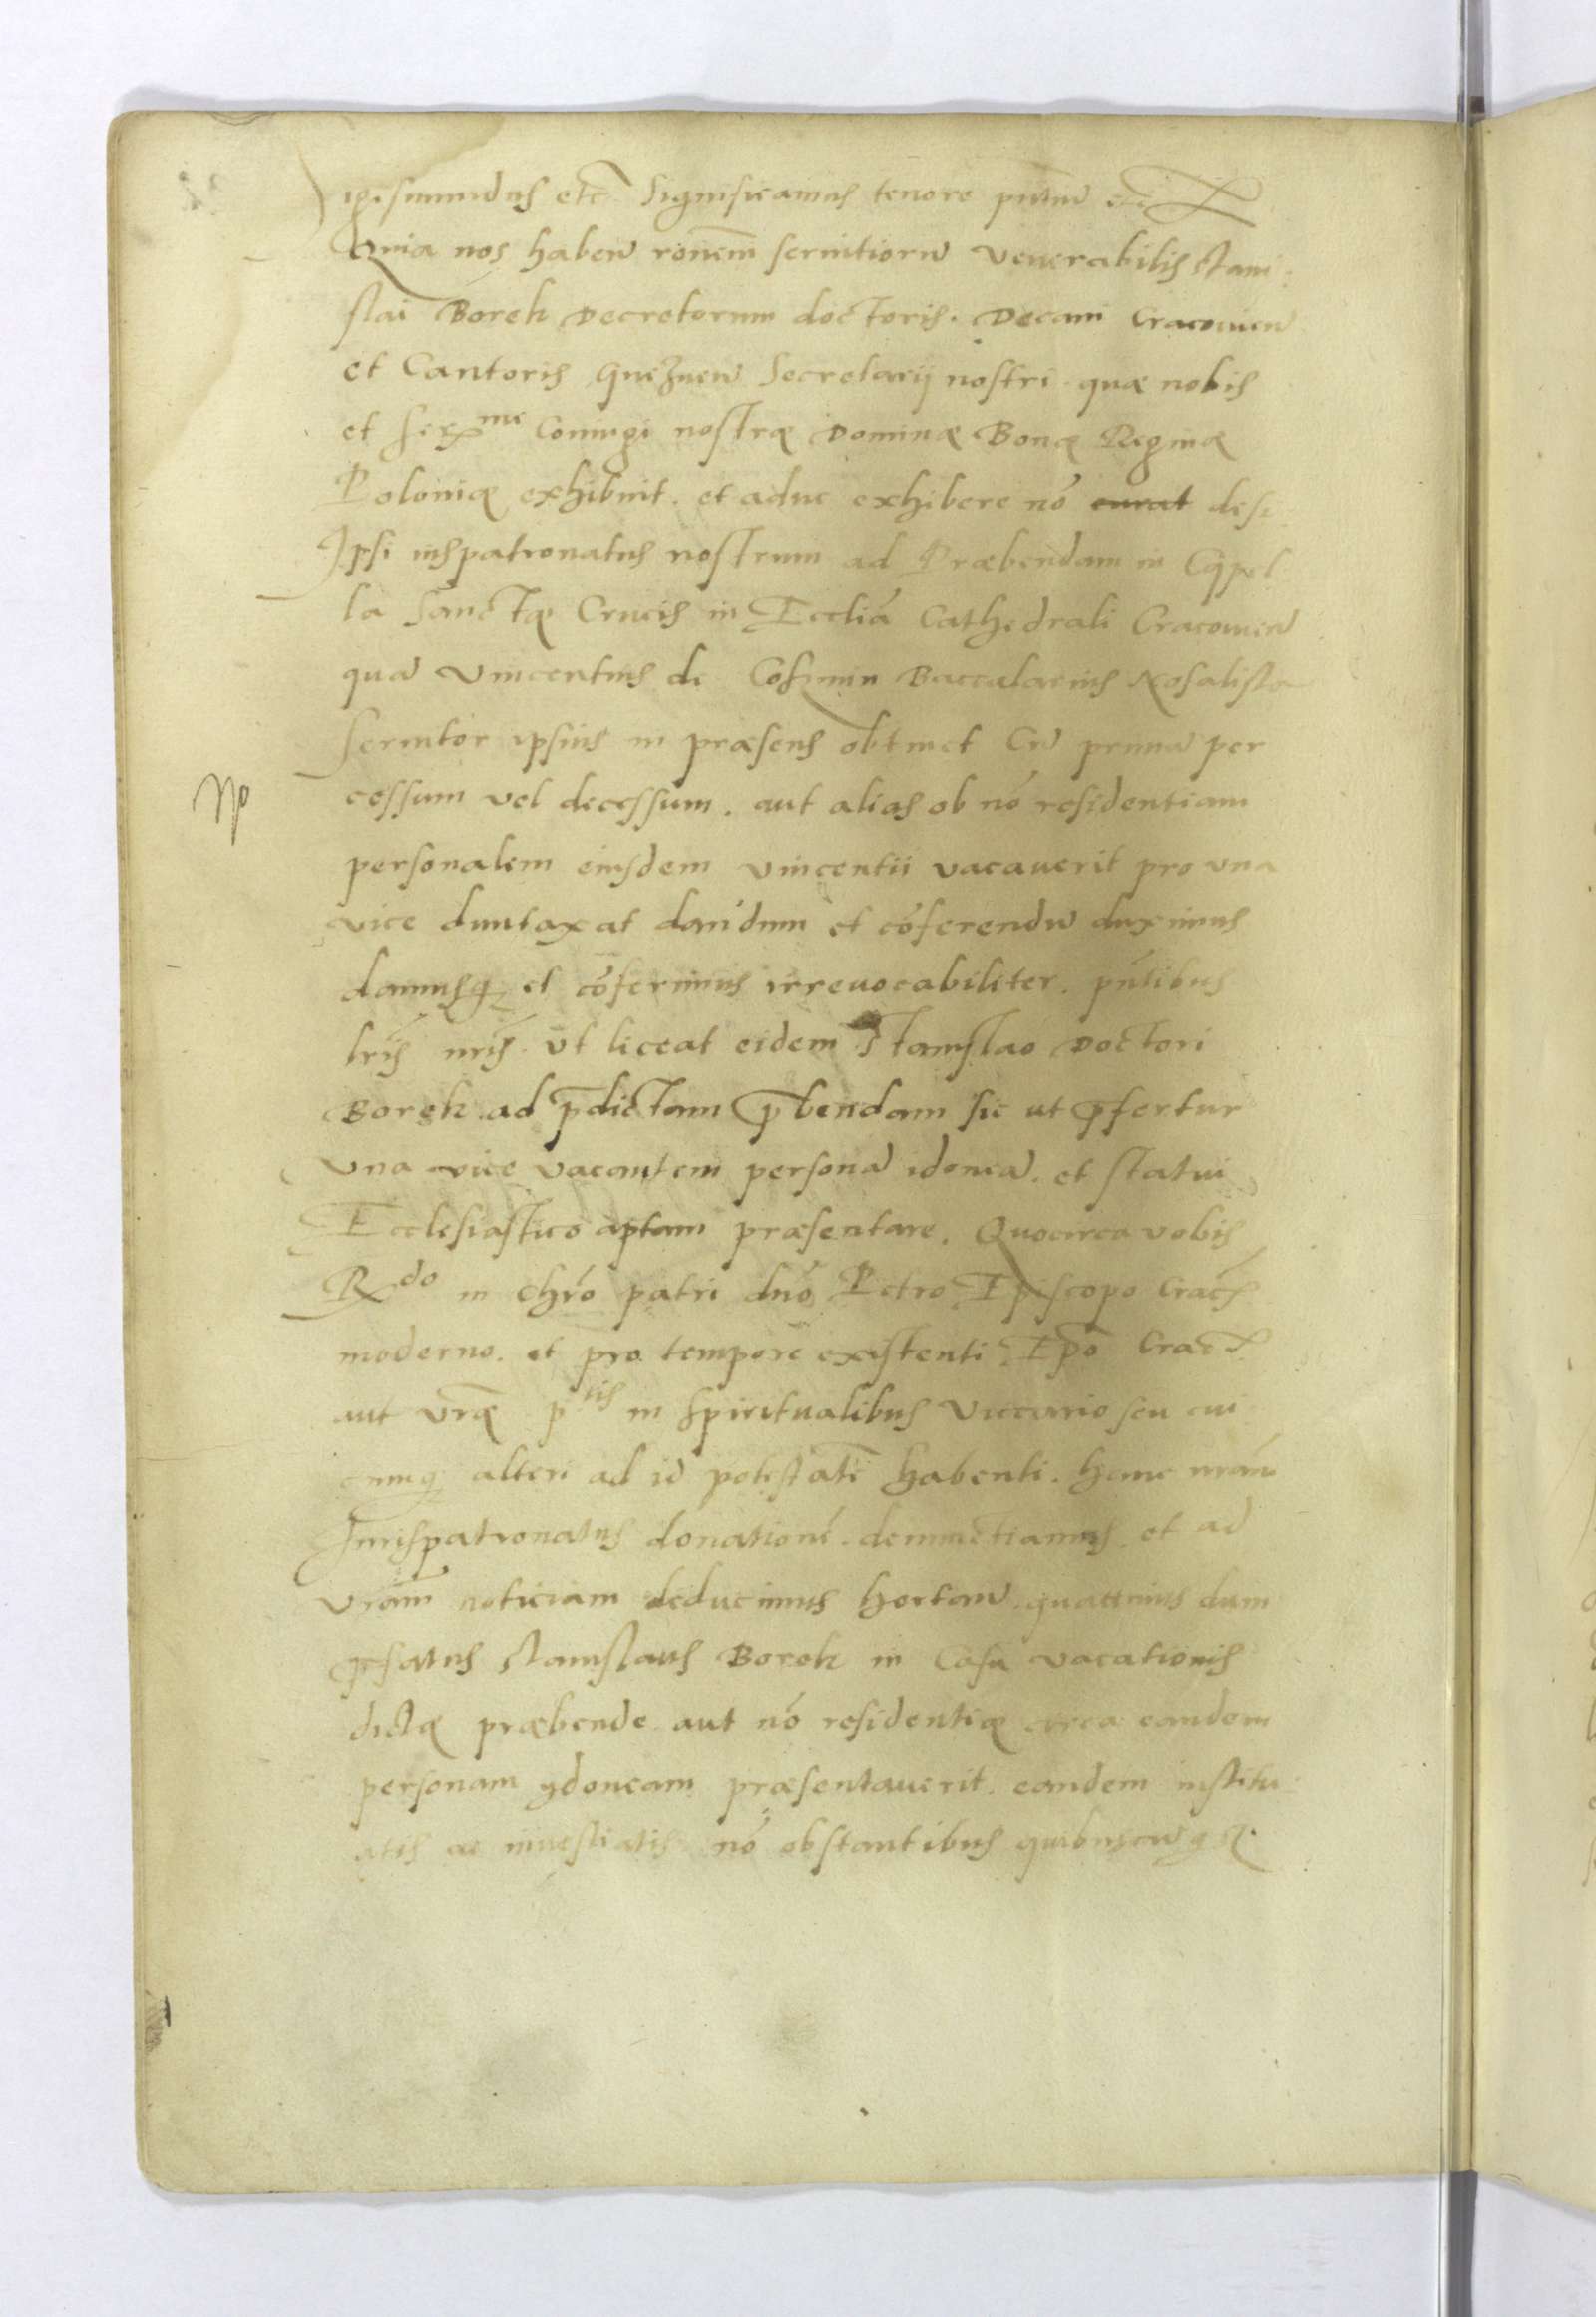 Sigismundus etc̃ Significamus tenore pñtiũ etc̃
Quia nos habeñ rōnem̃ seruitiorũ venerabilis Stani-
slai Borek Decretorum doctoris. Decani Cracouieñ
et Cantoris Gnezneñ Secretarij nostri quæ nobis
et Ser^me Coniugi nostræ Dominæ Bonæ Reginæ
Poloniæ exhibuit. et aduc exhibere nõ curat desi-
Ipsi iuspatronatus nostrum ad Præbendam in Capel
la Sanctæ Crucis in Eccliã Cathedrali Cracouieñ
quã Vincentius de Baccalarius
Seruitor ipsius in præsens obtinet Cũ primũ per
No
cessum vel decessum. aut alias ob nõ residentiam
personalem eiusdem Vincentii vacauerit pro vna
vice duntaxat dandum et cõferendũ duximus
damusq; et cõferimus irreuocabiliter. pñtibus
lrĩs nrĩs. vt liceat eidem Stanislao Doctori
Borek ad p̃dictam p̃bendam sic ut p̃fertur
vna vice vacantem personã idoneã. et statui
Ecclesiastico aptam præsentare. Quocirca vobis
R^do in chrõ patri dnõ Petro Episcopo Crac̃
moderno. et pro tempore existenti Epõ Crac̃
aut vræ̃ p^tis in Spiritualibus Viccario seu cui
cunq; alteri ad id potestatẽ habenti. hanc nrãm
Iurispatronatus donationẽ. denunctiamus. et ad
vrãm noticiam deducimus hortañ. quattinus dum
p̃fatus Stanislaus Borek in Casu vacationis
dictæ præbende aut nõ residentiæ circa eandem
personam ydoneam præsentauerit. eandem institu-
atis ac inuestiatis nõ obstantibus quibuscũq;